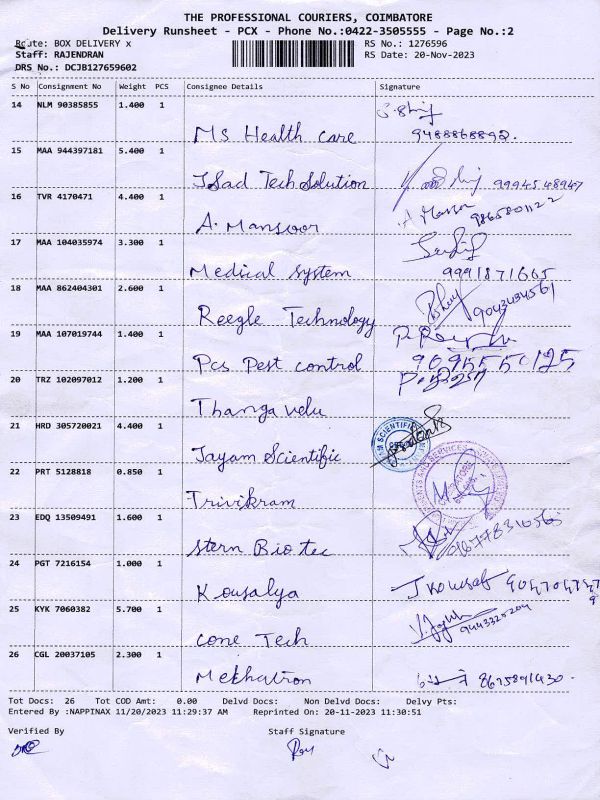 THE PROFESSIONAL COURIERS, COIMBATORE
Delivery Runsheet - PCX - Phone No.:0422-3505555 - Page No.:2
Route: BOX DELIVERY x RS No.: 1276596
Staff: RAJENDRAN RS Date: 20-Nov-2023
DRS No.: DCJB127659602
S No Consignment No Weight PCS Consignee Details Signature
14 NLM 90385855 1.400 1
Ms Health care 9488868892.
15 MAA 944397181 5.400 1
JSad Tech Solution 9994548947
16 TVR 4170471 4.400 1
A. Mansoor A Mansoor 9865801122
17 MAA 104035974 3.300 1
Medical system 9991871665
18 MAA 862404301 2.600 1
Reegle Technology 9043434561
19 MAA 107019744 1.400 1
Pcs Pest control 9095550125
20 TRZ 102097012 1.200 1
Thangavelu
21 HRD 305720021 4.400 1
Jayam Scientific
22 PRT 5128818 0.850 1
Trivikram
23 EDQ 13509491 1.600 1
Stern Bio tec
24 PGT 7216154 1.000 1
Kousalya
25 KYK 7060382 5.700 1
cone Tech 9443320204
26 CGL 20037105 2.300 1
Mekhatron
Tot Docs: 26 Tot COD Amt: 0.00 Delvd Docs: Non Delvd Docs: Delvy Pts:
Entered By :NAPPINAX 11/20/2023 11:29:37 AM Reprinted On: 20-11-2023 11:30:51
Verified By Staff Signature